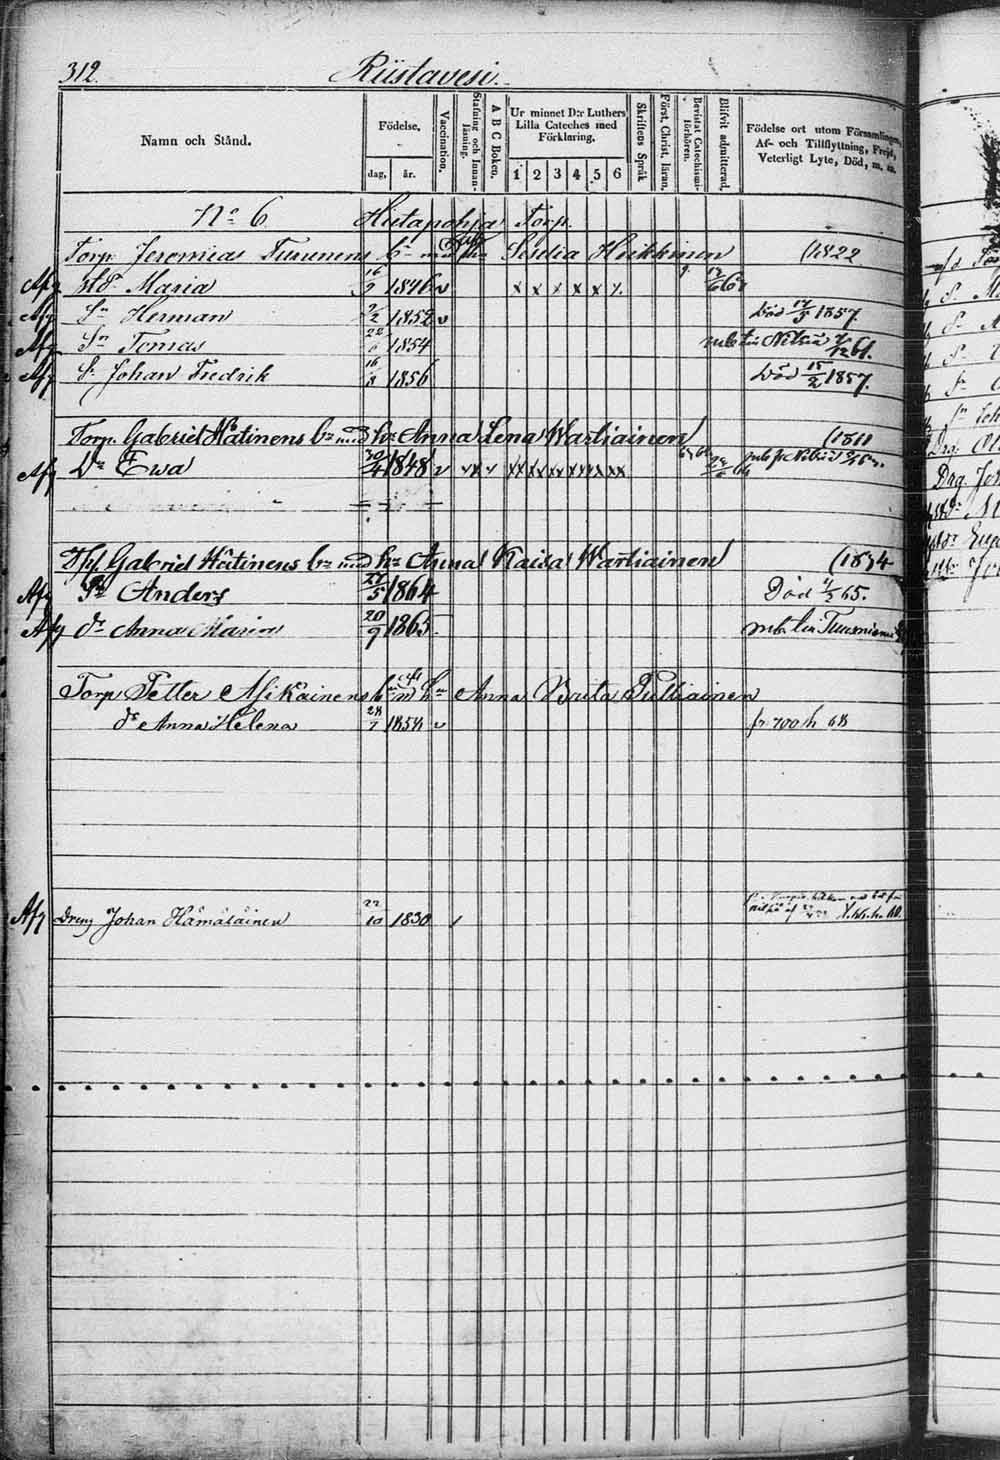 312. Riistavesi.
Namn och Stånd.
Födelse.
dag, år.
Vaccination.
Stafning och Innanläsning.
A B C Boken.
Ur minnet D:r Luthers Lilla Cateches med Förklaring.
1 2 3 4 5 6
Skriftens Språk
Först. Christ. läran.
Bevistat Catechismi-förhören.
Blifvit admitterad.
Födelse ort utom Församlingen, Af- och Tillflyttning, Frejd, Veterligt Lyte, Död, m. m.
No 6 Hietapohja Torp.
Torp. Jeremias Turunens bn med hu Seselia Heikkinen (1822
Afg Maria 16/9 1846 v x x x x x x. 6
Afg Sn Herman 2/2 1852 v Död 17/5 1857
Afg Sn Tomas 22 1854 till Nilsiä
Afg S. Johan Fredrik 16/8 1856 Död 15/2 1857.
Torp. Gabriel Hätinens bn med hu Anna Lena Wartiainen (1811
Afg Dr Ewa 30/4 1848 v
Gabriel Hätinens bn med hu Anna Kaisa Wartiainen (1834
Afg Sn Anders 27/5 1864 Död 65.
Afg dr Anna Maria 20/9 1865.
Torp Petter Asikainens bn m hu Anna Brita Pulliainen
dr Anna Helena 28/7 1854 v fr 700 h 68
Afg Dreng Johan Hämäläinen 22/10 1830